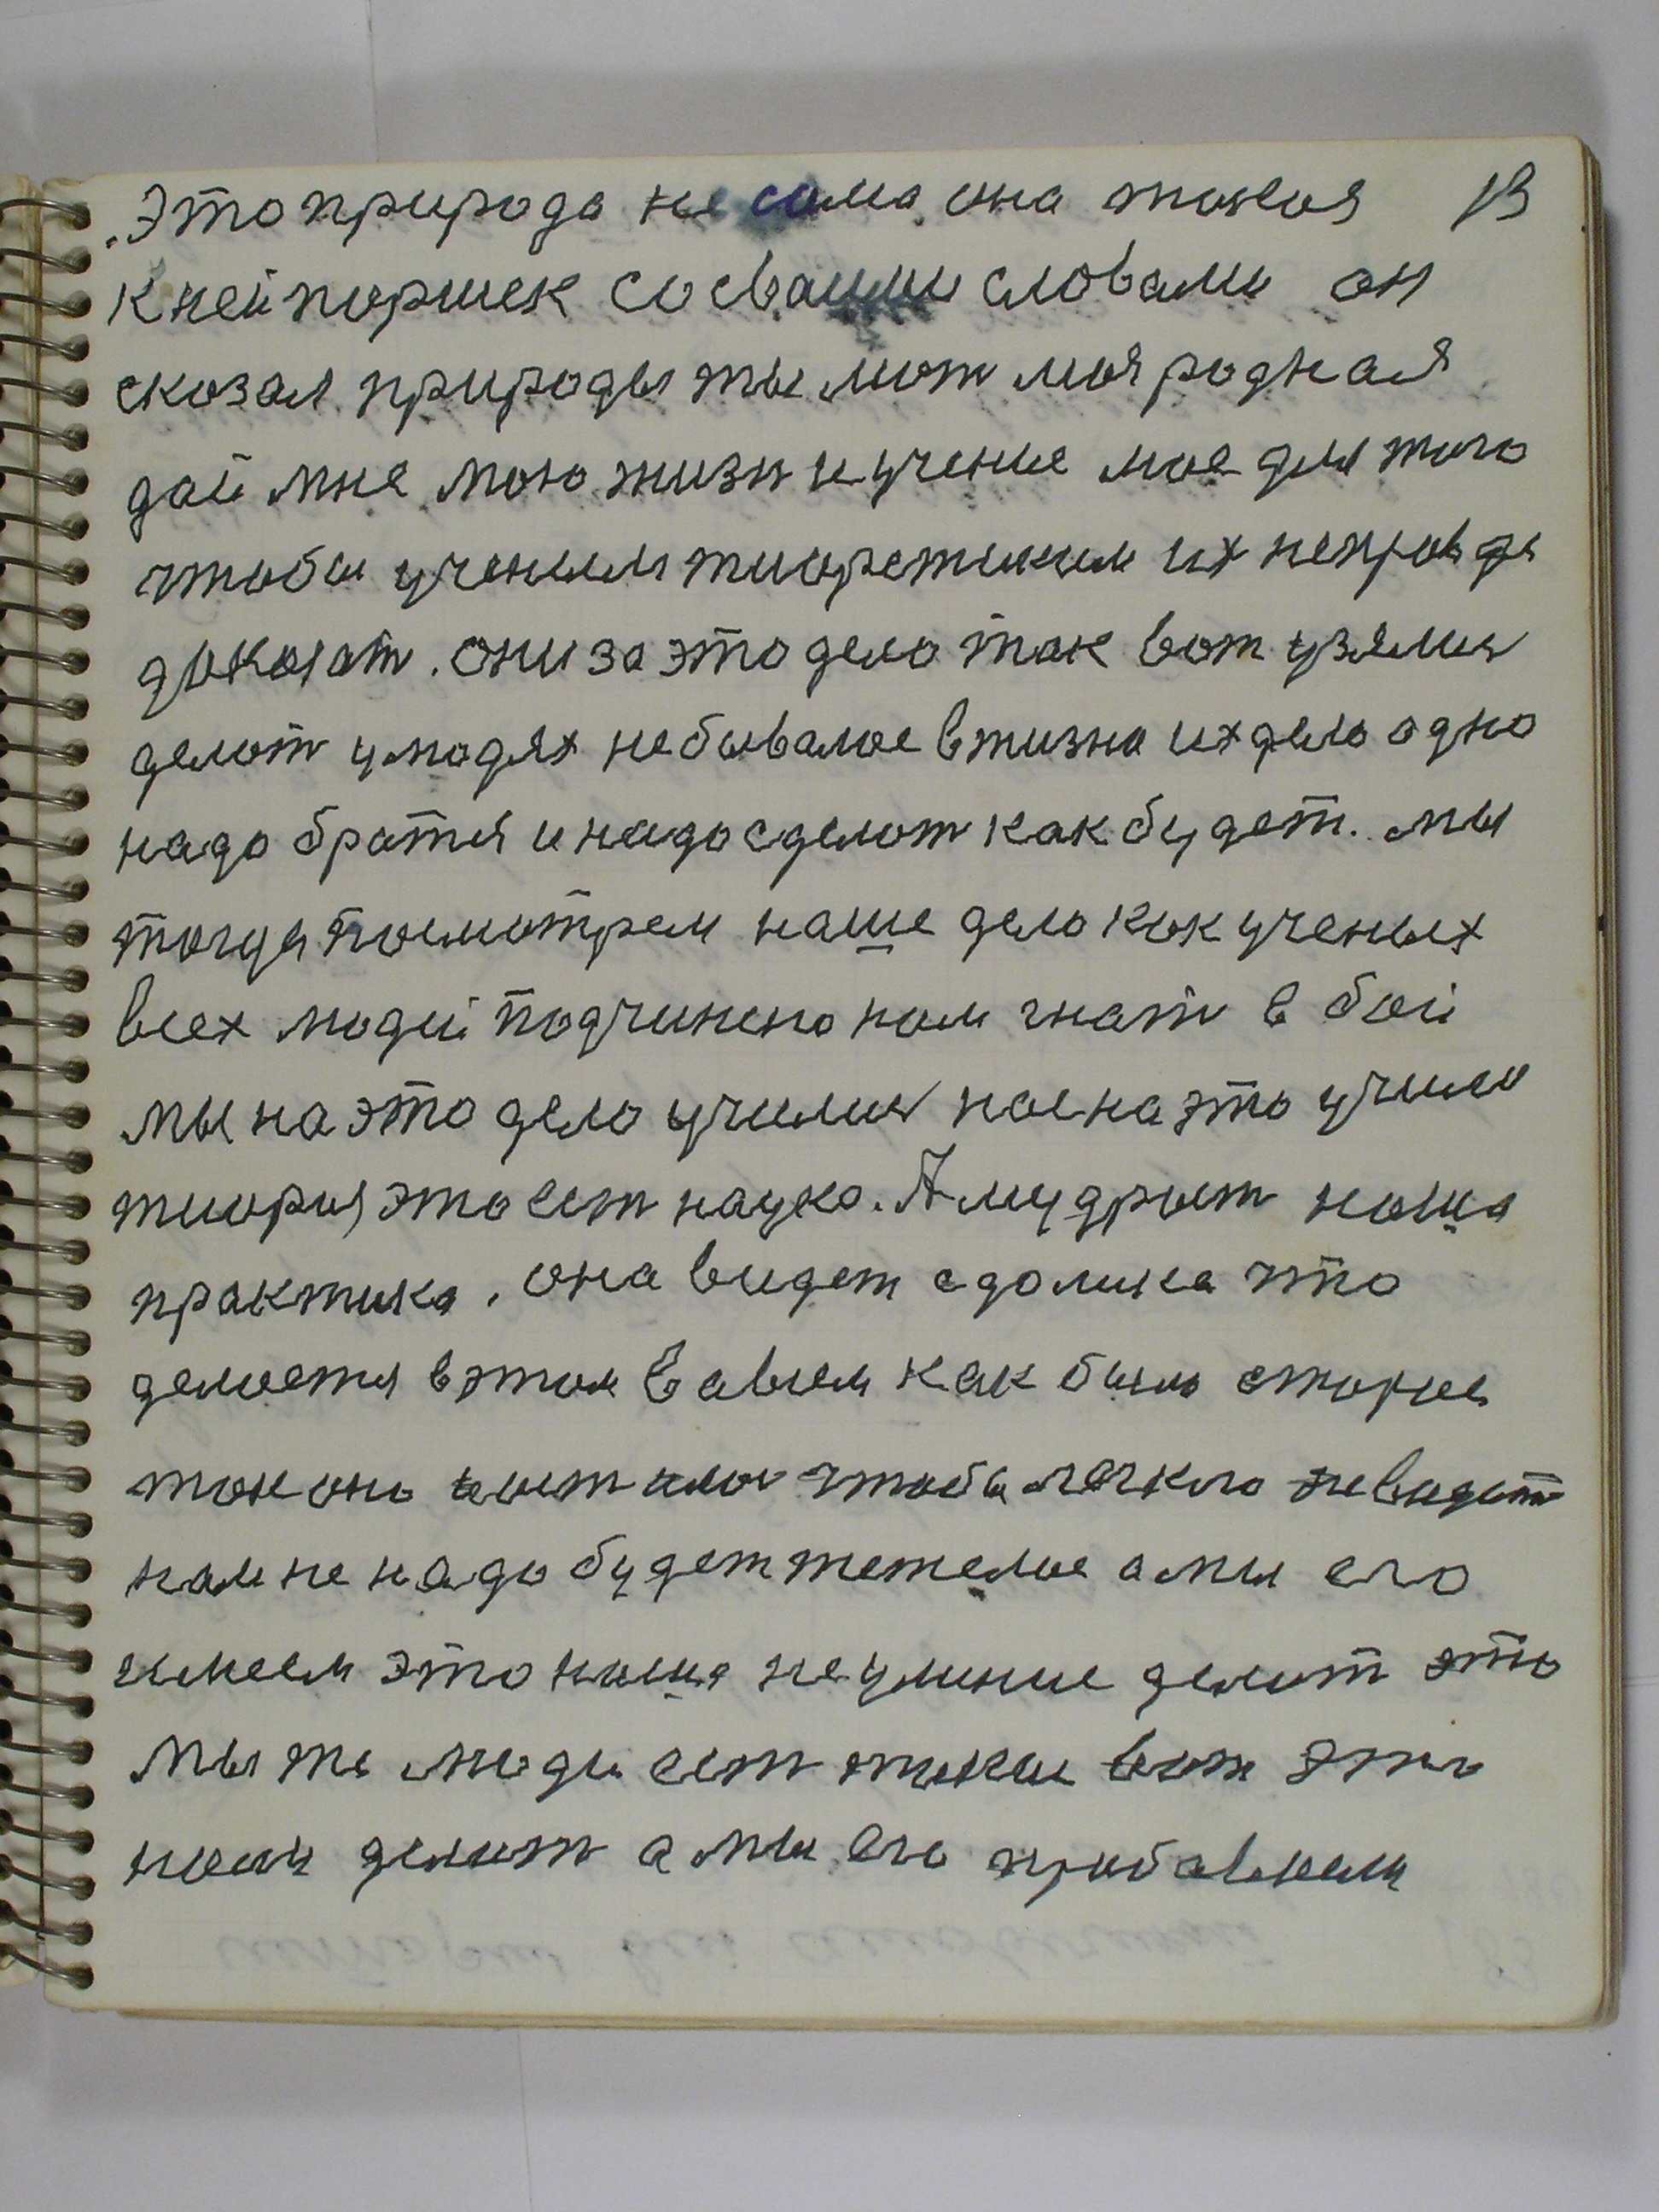 Это природа не сама она токоя 13
к ней поршек со сваими словами он
сказал природы ты мот моя родная
дай мне мою жизн и учение мое для того
чтобы ученым тиоретиким их неправда
докозат. они за это дело так вот узялис
делот у людях небывалое в жизне их дело одно
надо братся и надо сделот как будет. мы
тогда посмотрем наше дело как ученых
всех людей подчинено нам гнат в бой
мы на это дело училис нас на это учило
тиория это ест наука. А мудрост наша
практика. она видет сдолика что
делоется в этом в авсем как было старое
токоно осталос чтобы лечкго не видет
нам не надо будет тежелое а мы его
имеем это наша неумение делот это
мы те люди ест такие вот это
наши делот а мы его прибавлеем